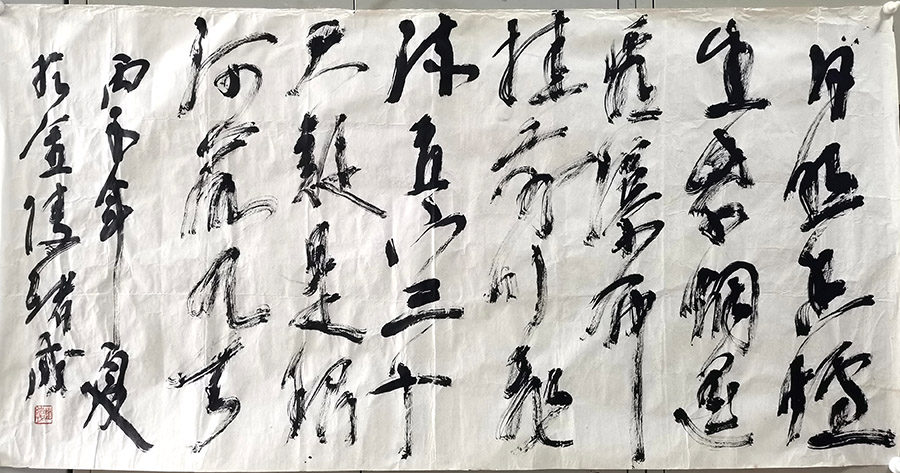 日照香爐
生紫烟遥
看瀑布
挂前川飛
流直下三千
尺疑是銀
河落九天
丙子年夏
於金陵